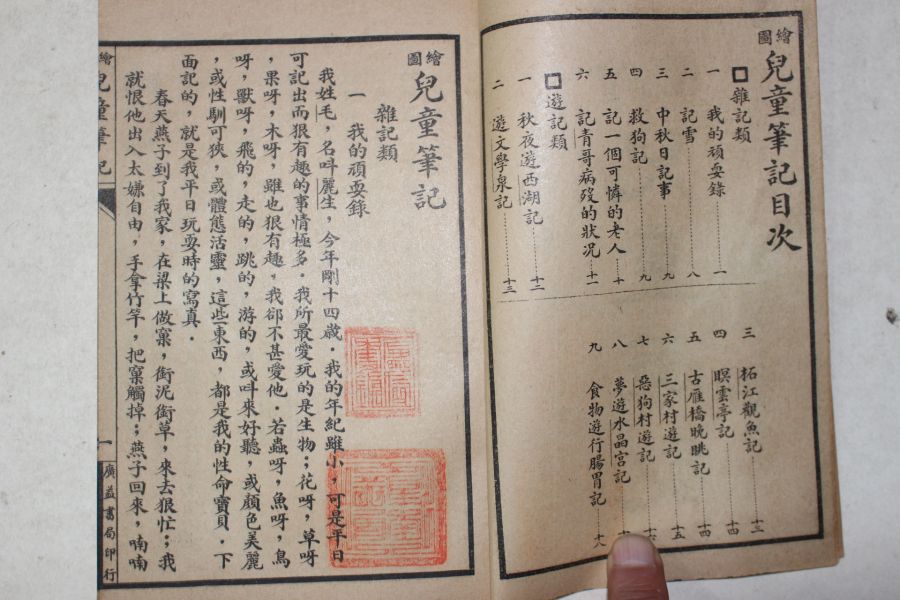 繪圖兒童筆記目次
雜記類
一 我的頑耍錄 一
二 記雪 八
三 中秋日記事 九
四 救狗記 九
五 記一個可憐的老人 十
六 記青哥病歿的狀況 十一
遊記類
一 秋夜遊西湖記 十二
二 遊文學泉記 十三
三 柘江觀魚記 十三
四 暝雲亭記 十四
五 古雁橋晚眺記 十四
六 三家村遊記 十五
七 惡狗村遊記
八 夢遊水晶宮記
九 食物遊行腸胃記 十八
繪圖兒童筆記
雜記類
一 我的頑耍錄
我姓毛，名叫麗生，今年剛十四歲．我的年紀雖小，可是平日
可記出而狠有趣的事情極多．我所最愛玩的是生物；花呀，草呀
，果呀，木呀，雖也狠有趣，我郤不甚愛他．若蟲呀，魚呀，鳥
呀，獸呀，飛的，走的，跳的，游的，或叫來好聽，或顏色美麗
，或性馴可狹，或體態活靈，這些東西，都是我的性命寶貝．下
面記的，就是我平日玩耍時的寫真．
春天燕子到了我家，在梁上做窠，銜泥銜草，來去狠忙；我
就恨他出入太嫌自由，手拿竹竿，把窠觸掉；燕子回來，喃喃
繪圖兒童筆記
一
廣益書局印行